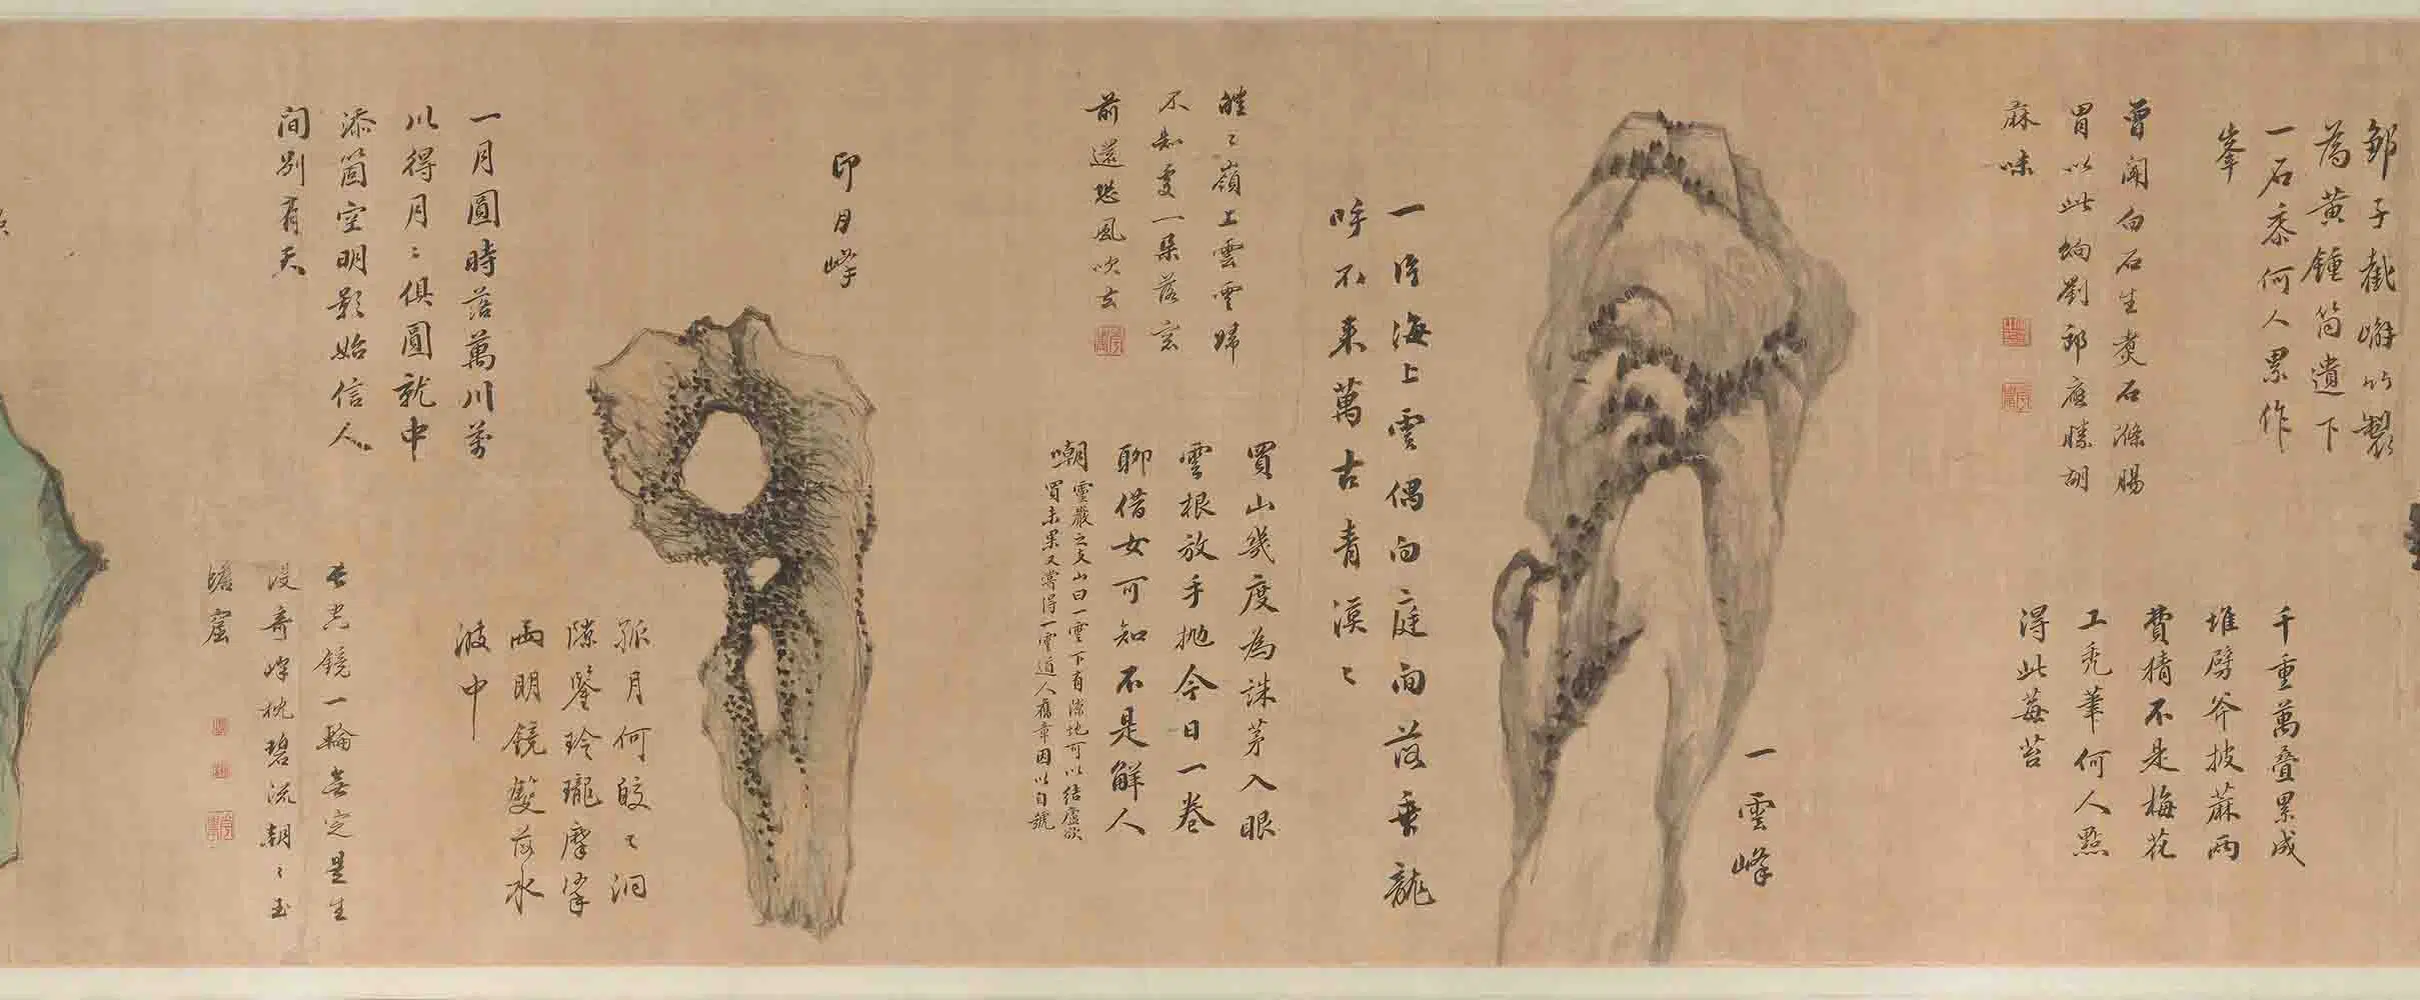 鄒子截嶰竹製
為黃鍾筒遺下
一石黍何人累作
峯
曾聞白石生煑石滌腸
胃以此餉劉郎應勝胡
麻味
千重萬疊累成
堆劈斧披麻兩
費猜不是梅花
工禿筆何人點
得此莓苔
一雲峰
一片海上雲偶向庭前落乗龍
呼不来萬古青漠〻
英〻嶺上雲雲歸
不知處一朵落窓
前還恐風吹去
買山幾度為誅茅入眼
雲根放手拋今日一卷
聊借女可知不是解人
嘲
靈巖之支山曰一雲下有隙地可以結廬欲
買未果又嘗得一雲道人舊章因以自號
印月峰
一月圓時落萬川萬
川得月〻俱圓就中
添箇空明影始信人
間別有天
孤月何皎〻洞
隙鑒玲瓏摩挲
兩明鏡雙落水
波中
玉光鏡一輪無定是生
没奇峰枕碧流朝〻玉
蟾窟